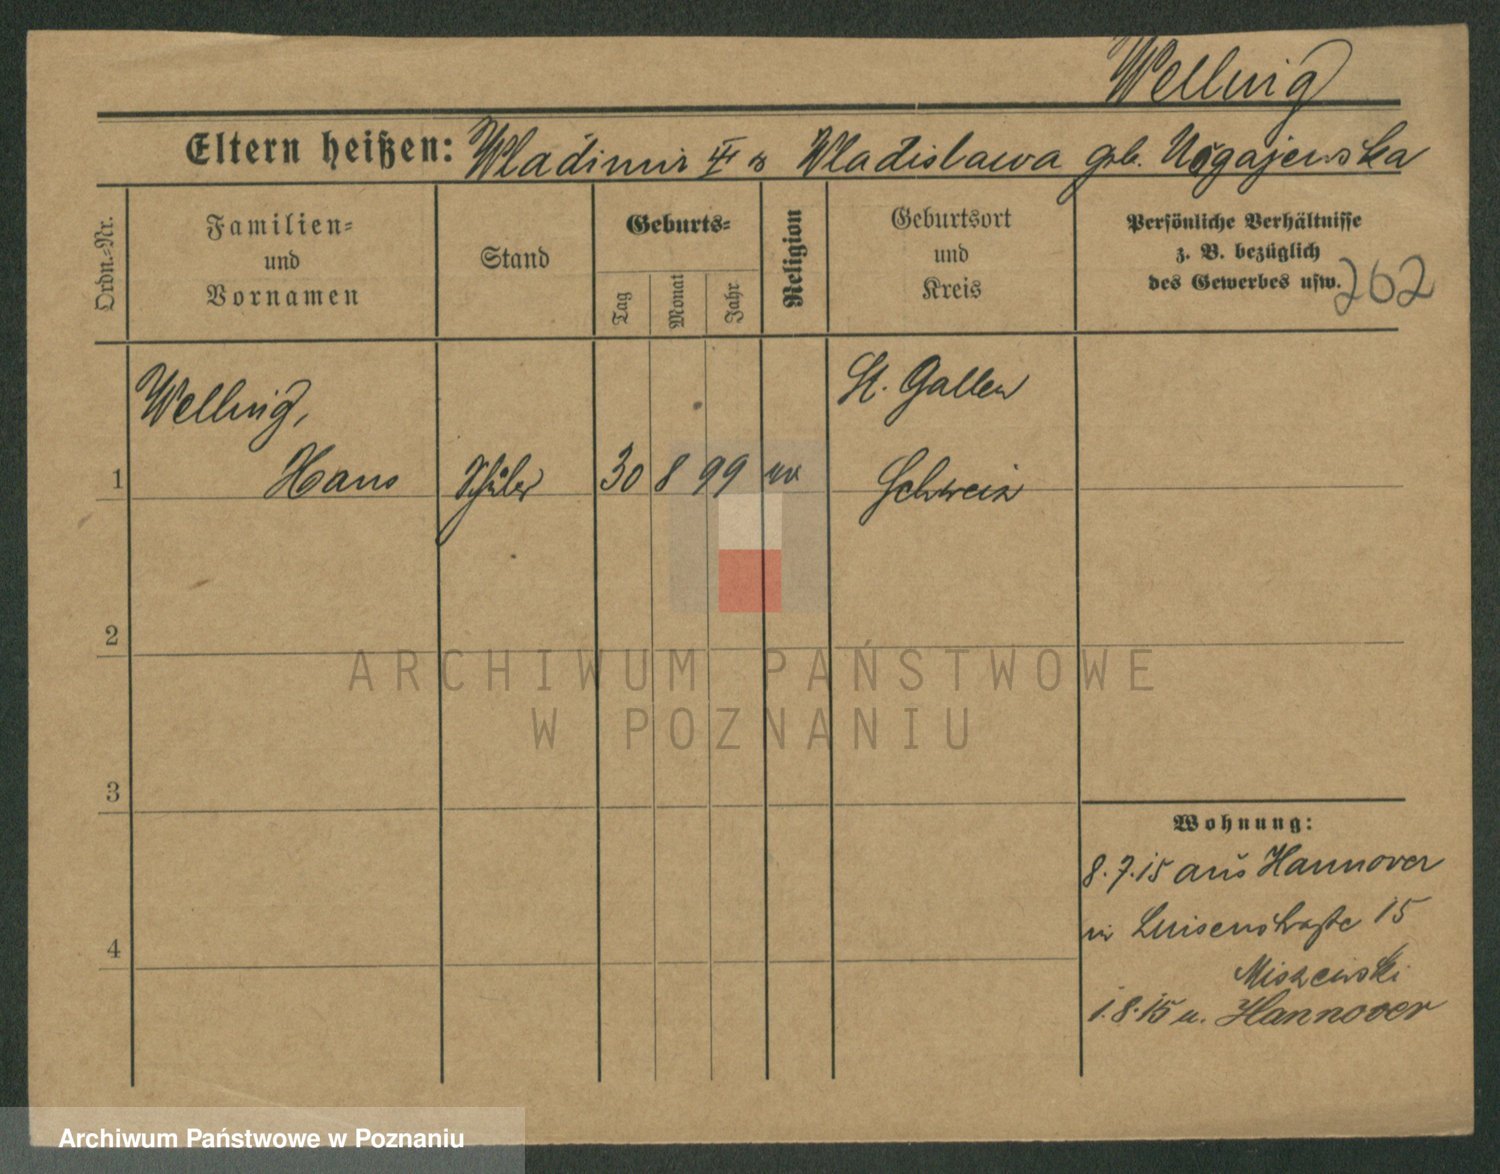 Wellnig
Eltern heißen: Wladimir & Wladislawa geb.
Ordn.-Nr.
Familien-
und
Vornamen
Stand
Geburts-
Tag
Monat
Jahr
Religion
Geburtsort
und
Kreis
Persönliche Verhältnisse
z. B. bezüglich
des Gewerbes usw.
262
Wellnig,
St. Gallen
1 Hans Schüler 30 8 99 Schweiz
2
3
4
Wohnung:
8.7.15 aus Hannover
Luisenstraße 15
Miszewski
1.8.15 n. Hannover
ARCHIWUM PAŃSTWOWE
W POZNANIU
Archiwum Państwowe w Poznaniu